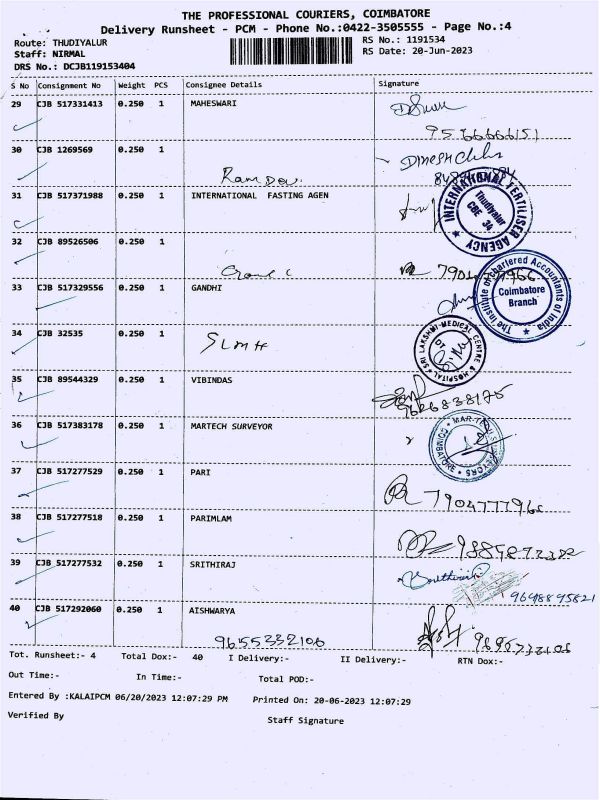 THE PROFESSIONAL COURIERS, COIMBATORE
Delivery Runsheet - PCM - Phone No.:0422-3505555 - Page No.:4
Route: THUDIYALUR
RS No.: 1191534
Staff: NIRMAL
RS Date: 20-Jun-2023
DRS No.: DCJB119153404
S No Consignment No Weight PCS Consignee Details Signature
29 CJB 517331413 0.250 1 MAHESWARI
30 CJB 1269569 0.250 1
Ram Dev.
31 CJB 517371988 0.250 1 INTERNATIONAL FASTING AGEN
INTERNATIONAL FERTILISER AGENCY
Thudiyalur
CBE 34
32 CJB 89526506 0.250 1
33 CJB 517329556 0.250 1 GANDHI
The Institute of Chartered Accountants of India
Coimbatore
Branch
34 CJB 32535 0.250 1 SLMH
SRI LAKSHMI MEDICAL CENTRE & HOSPITAL
35 CJB 89544329 0.250 1 VIBINDAS
9626838175
36 CJB 517383178 0.250 1 MARTECH SURVEYOR
COIMBATORE
37 CJB 517277529 0.250 1 PARI
38 CJB 517277518 0.250 1 PARIMLAM
39 CJB 517277532 0.250 1 SRITHIRAJ
9698895821
40 CJB 517292060 0.250 1 AISHWARYA
9655332106
Tot. Runsheet:- 4 Total Dox:- 40 I Delivery:- II Delivery:- RTN Dox:-
Out Time:- In Time:- Total POD:-
Entered By :KALAIPCM 06/20/2023 12:07:29 PM Printed On: 20-06-2023 12:07:29
Verified By Staff Signature